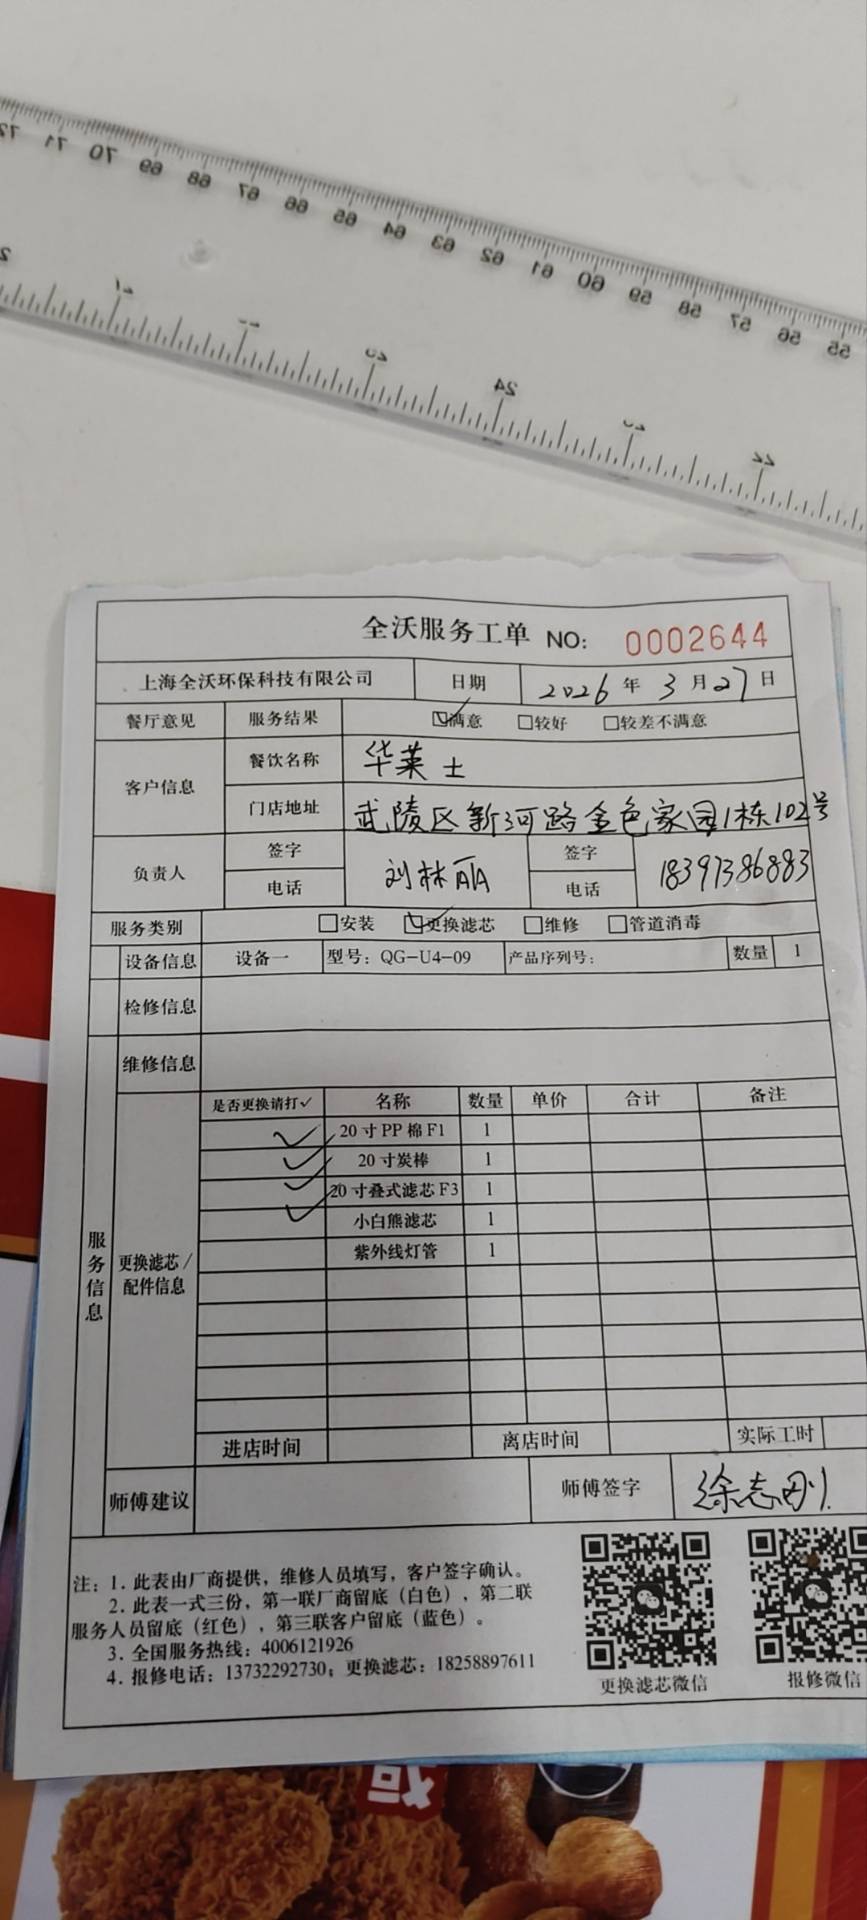 72 71 70 69 68 67 66 65 64 63 62 61 60 59 58 57 56 55
24 22
全沃服务工单 NO: 0002644
上海全沃环保科技有限公司 日期 2026年3月27日
餐厅意见 服务结果 ☑满意 □较好 □较差不满意
客户信息 餐饮名称 华莱士
门店地址 武陵区新河路金色家园1栋102号
负责人 签字 电话 刘林丽 签字 电话 18391386883
服务类别 □安装 ☑更换滤芯 □维修 □管道消毒
设备信息 设备一 型号：QG-U4-09 产品序列号： 数量 1
检修信息
维修信息
服务信息
更换滤芯/配件信息
是否更换请打✓ 名称 数量 单价 合计 备注
✓ 20寸PP棉F1 1
✓ 20寸炭棒 1
✓ 20寸叠式滤芯F3 1
✓ 小白熊滤芯 1
紫外线灯管 1
进店时间 离店时间 实际工时
师傅建议 师傅签字 徐志刚
注：1．此表由厂商提供，维修人员填写，客户签字确认。
2．此表一式三份，第一联厂商留底（白色），第二联
服务人员留底（红色），第三联客户留底（蓝色）。
3．全国服务热线：4006121926
4．报修电话：13732292730；更换滤芯：18258897611
更换滤芯微信 报修微信